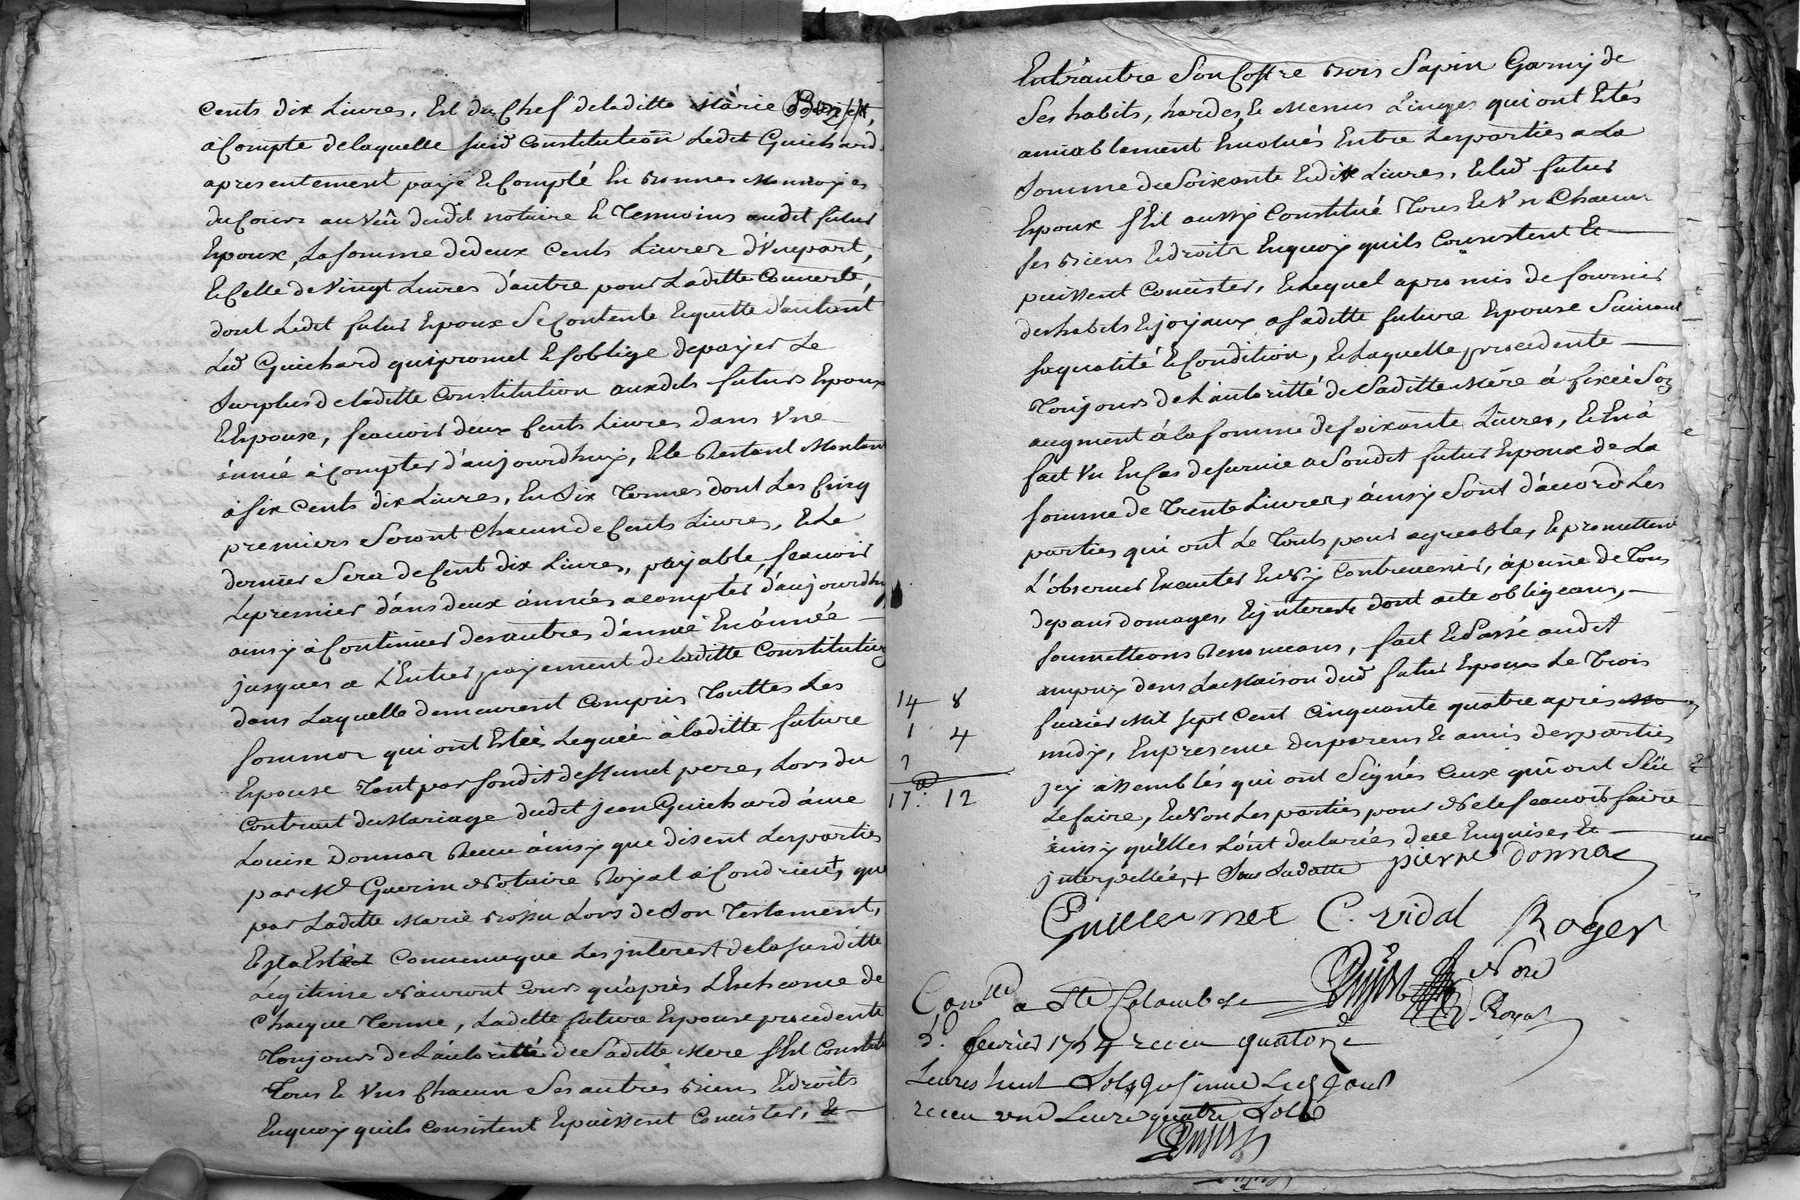 cents dix Livres, Est du Chef de laditte Marie
a Compte de laquelle susd Constitution Ledit Guichard
apresentement payé et Compté En bonnes Monnoyes
du Cours au Vëu dudit notaire et Temoins audit futur
Epoux, La somme de deux Cents Livres d'Une part,
et Celle de Vingt Livres d'autre pour Laditte Couverte,
dont Ledit futur Epoux Se Contente Equitte d'autant
Led Guichard qui promet Et soblige de payer Le
Surplus de laditte Constitution auxdits futurs Epoux
Et Epouse, scavoir deux Cents Livres dans Une
année a compter d'aujourdhuy, Et le Restant Montant
a six cents dix Livres, En Six Termes dont Les Cinq
premiers Seront Chacun de Cents Livres, Et Le
dernier Sera de Cent dix Livres, payable, scavoir
Le premier dans deux années a compter d'aujourdhuy
ainsy a Continuer des autres d'année En année
jusques a L'Entier payement de laditte Constitution
dans Laquelle demeurent Compris Touttes Les
Sommes qui ont Estée Leguée à laditte future
Epouse Tant par son dit deffunct pere, Lors du
Contract de Mariage dudit jean Guichard avec
Louise Donnat Receu ainsy que disent Les parties
par Me Guerin Notaire Royal a Condrieu, que
par Laditte Marie Lors de Son Testament,
Convenu que Les jnterest de la susditte
Legitime N'auront Cours qu'après L'Escheance de
Chacque Terme, Laditte future Epouse procedente
Toujours de L'autoritté de Saditte Mere s'Est Constitué
Tous Et Uns Chacun Ses autres Biens Et droits
En quoy quils Consistent Et puissent Concister, Et
Entrautre Son Coffre Bois Sapin Garny de
Ses habits, hardes, Et Menus Linges qui ont Estés
amiablement Evalués Entre Les parties a La
Somme de Soixante Et dix Livres, Et led futur
Epoux s'Est aussy Constitué Tous Et Un Chacun
ses Biens Et droits En quoy quils Consistent Et
puissent Concister, Et Lequel a promis de fournir
des habits Et joyaux a saditte future Epouse Suivant
sa qualité Et Condition, Et Laquelle procedente
Toujours de L'autoritté de Saditte Mére á fixée Son
augment á la somme de soixante Livres, Et En á
fait Un En Cas de survie a Sondit futur Epoux de La
somme de Trente Livres, ainsy Sont d'accord Les
parties qui ont Le Tout pour agreable, Et promettent
L'observer Executer Et N'y Contrevenir, à peine de Tous
depans domages, Et jnterest dont acte obligeans,
soumettans Renonceans, fait Et Passé audit
ampuy dans La Maison dud futur Epoux Le Trois
fevrier Mil sept Cent Cinquante quatre après
midy, En presence des parens Et amis des parties
jcy assemblés qui ont Signés Ceux qui ont Sçu
Le faire, Et Non Les parties pour Ne le scavoir faire
ainsy qu'elles L'ont declarés de ce Enquises Et
jnterpellées + Sous Laditte pierre donnat
Guillermet C. vidal Roger
Nore
Royal
14 8
1 4
2
17 : 12
Con^lle a Ste Colombe Le
5^e fevrier 1754 receu quatorze
Livres huit Sols
receu une Livre quatre Sols